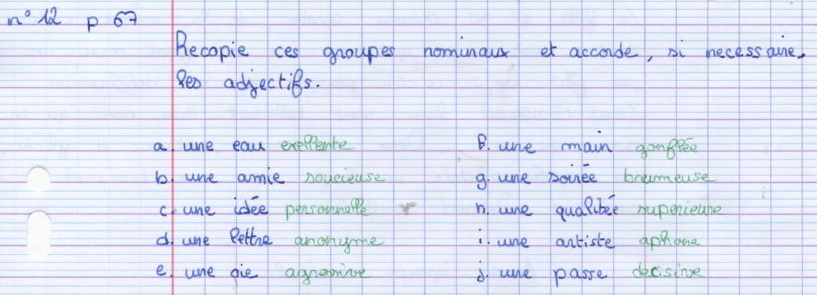 n° 12 p 67
Recopie ces groupes nominaux et accorde, si necessaire,
les adjectifs.
a. une eau exellente
b. une amie soucieuse
c. une idée personnelle
d. une lettre anonyme
e. une oie agressive
f. une main gonflée
g. une soirée brumeuse
h. une qualitée supérieure
i. une artiste aphone
j. une passe décisive